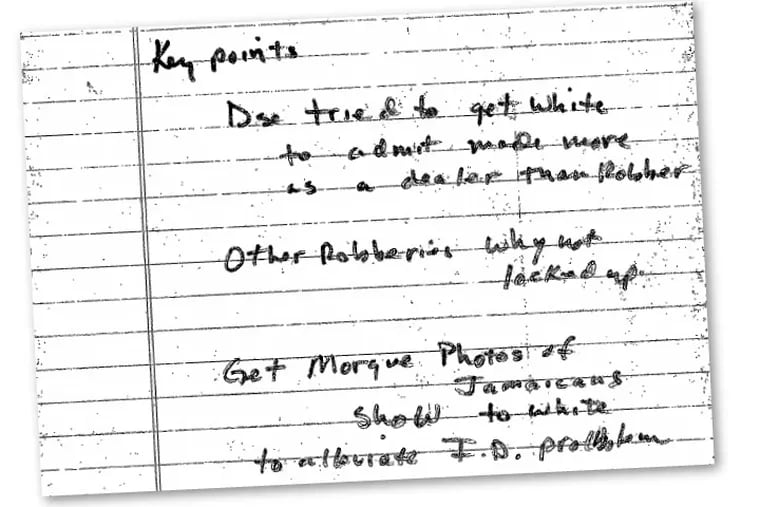 Key points
Dse tried to get White
to admit made more
as a dealer than Robber
Other Robberies why not
locked up.
Get Morgue Photos of
Jamaicans
Show to White
to alleviate I.D. problem